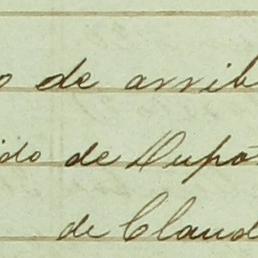 o de arrib
ido de Dupo
de Claud